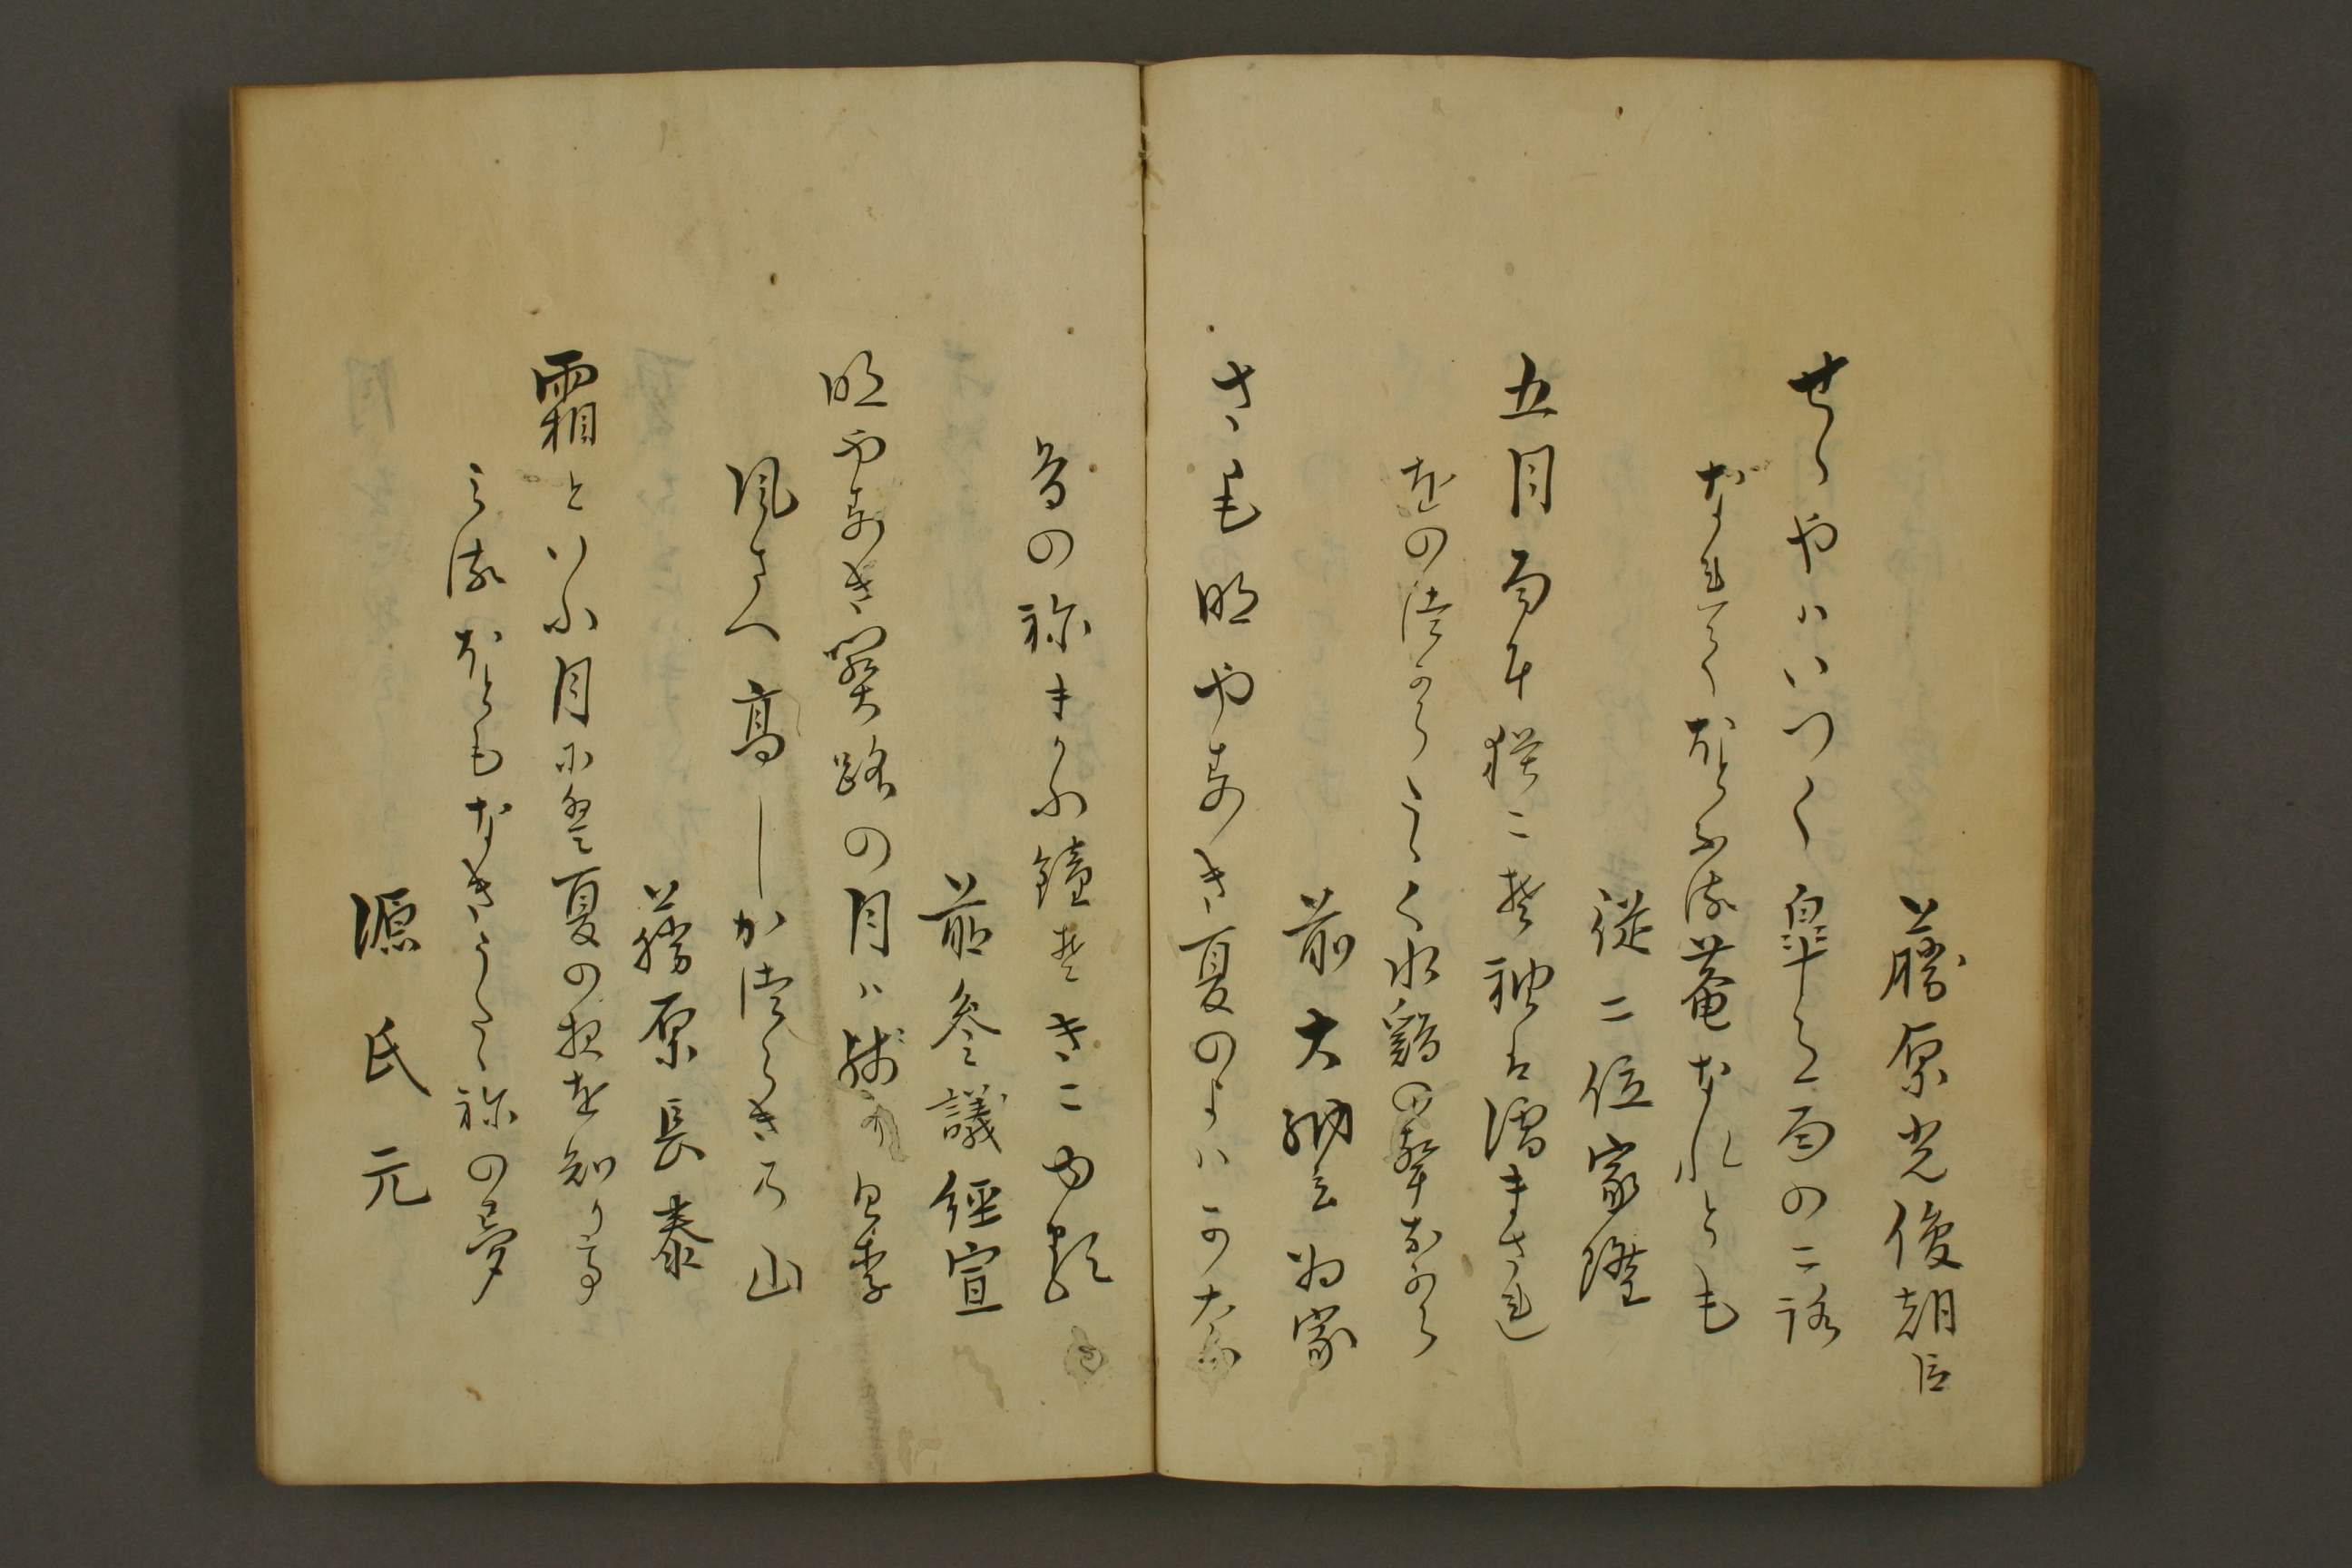 藤原光俊朝臣
せゝやハいつく皐月雨のこ路
なれてくなとふる菴なれとも
従二位家隆
五月雨に猶こそ袖は濡まされ
をのつからたゝく水鶏の聲なから
前大納言為家
さも明やすき夏のよハか
鳥の祢まかふ鐘そきこゆ類
前参議経宣
明やすき関路の月ハ残
風さへ高しかつらきの山
藤原長泰
霜といふ月に夏の夜を知りて
みるほともなきうたゝ祢の夢
源氏元